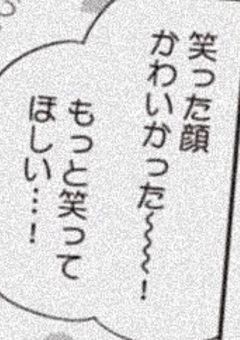 笑った顔
かわいかった〜〜〜!
もっと笑って
ほしい…!